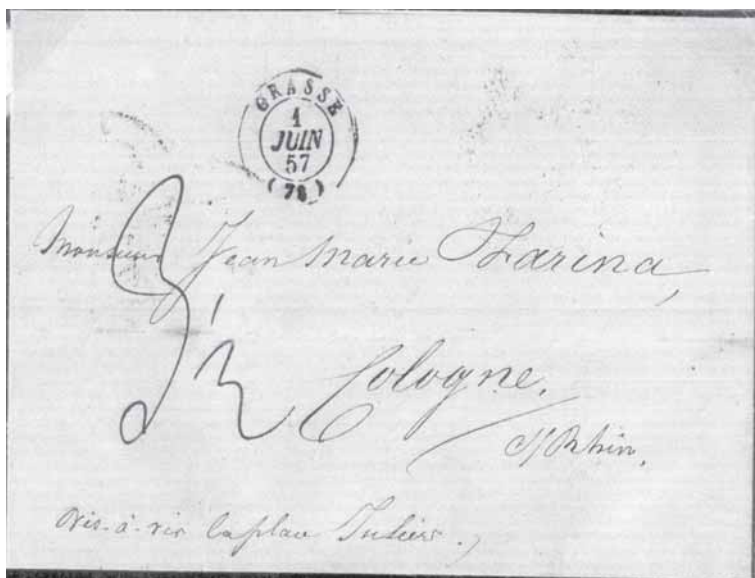 GRASSE
1
JUIN
57
(78)
Monsieur Jean Marie Farina,
Cologne.
s/Rhin.
vis-à-vis la place Juliers.